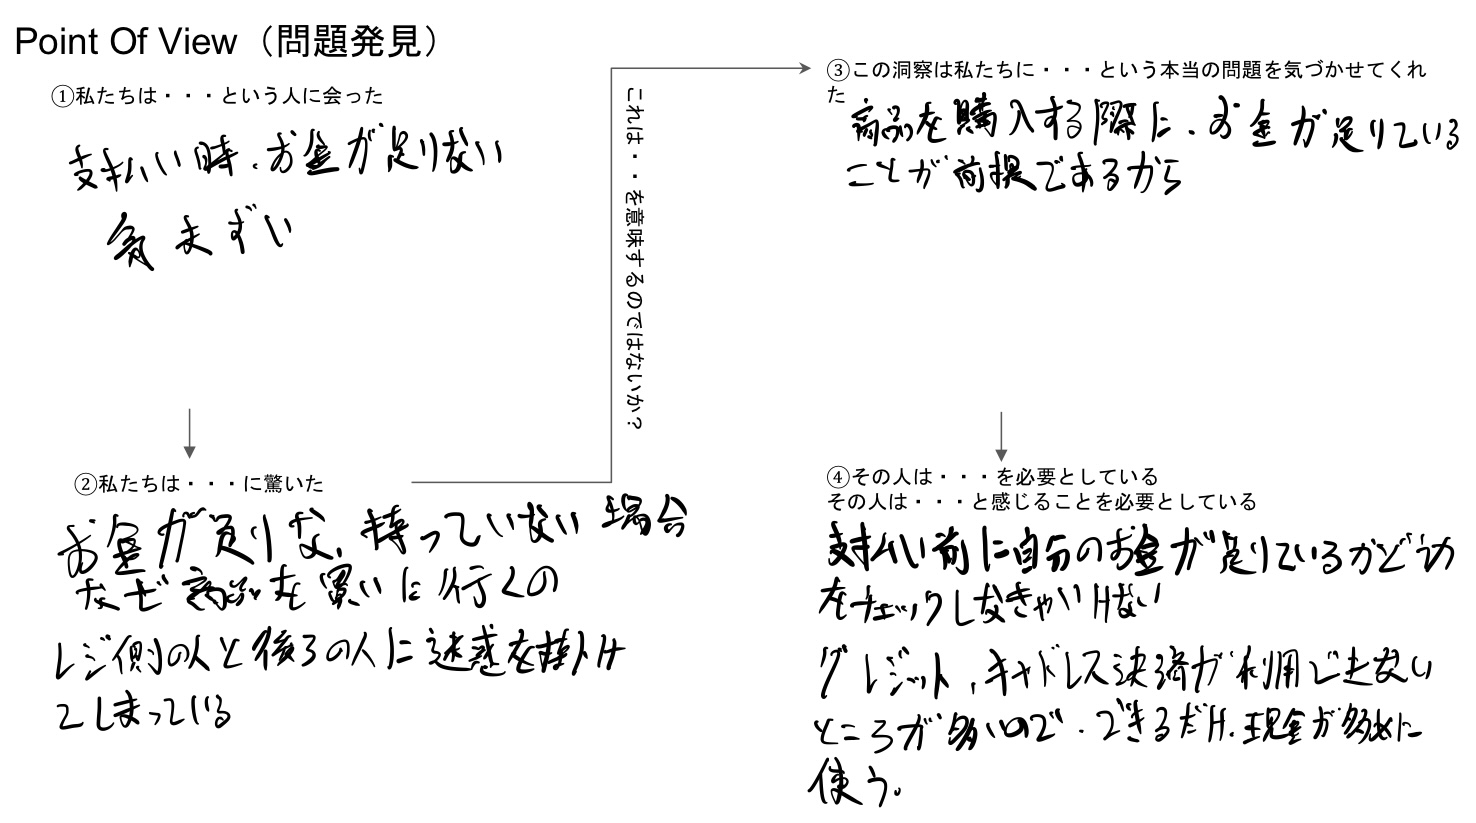 Point Of View（問題発見）
①私たちは・・・という人に会った
支払い時、お金が足りない
気まずい
②私たちは・・・に驚いた
お金が足りな、持っていない場合
なぜ商品を買いに行くの
レジ側の人と後ろの人に迷惑を掛け
てしまっている
これは・・を意味するのではないか？
③この洞察は私たちに・・・という本当の問題を気づかせてくれ
た
商品を購入する際に、お金が足りている
ことが前提であるから
④その人は・・・を必要としている
その人は・・・と感じることを必要としている
支払い前に自分のお金が足りているかどうか
をチェックしなきゃいけない
クレジット、キャドレス決済が利用できない
ところが多いので、できるだけ、現金が多めに
使う。